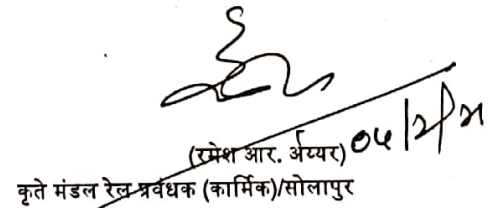 (रमेश आर. अय्यर)
कृते मंडल रेल प्रवंधक (कार्मिक)/सोलापुर